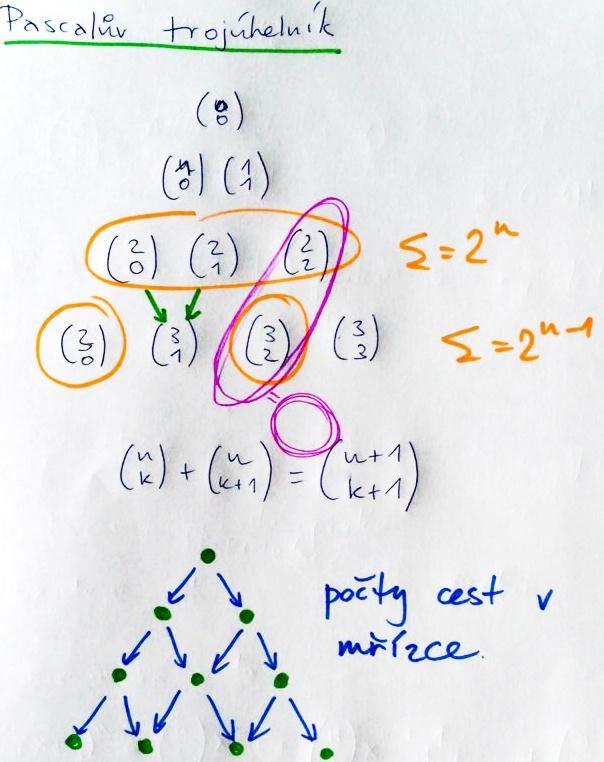 Pascalův trojúhelník
(0 0)
(1 0) (1 1)
(2 0) (2 1) (2 2) Σ = 2^n
(3 0) (3 1) (3 2) (3 3) Σ = 2^(n-1)
=
(n k) + (n k+1) = (n+1 k+1)
počty cest v
mřízce.